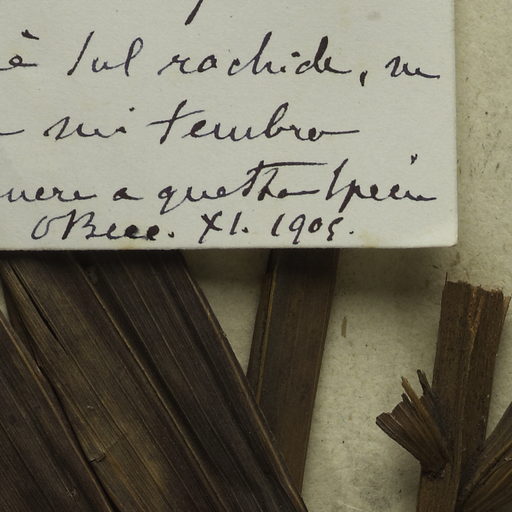 è sul rachide, ne
mi sembra
uere a questa Specie
OBecc. XI. 1905.